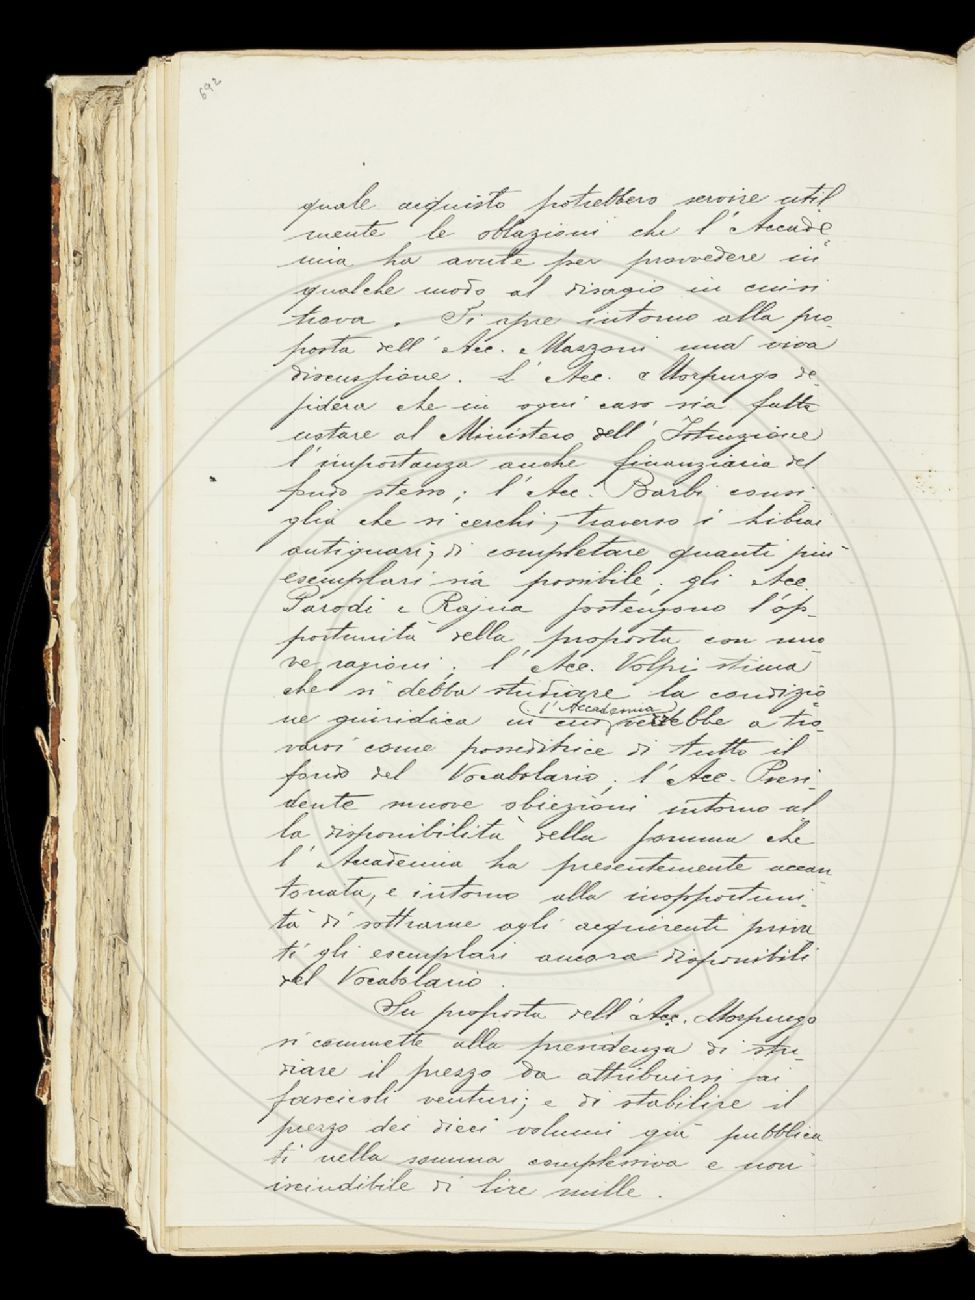 692
quale acquisto potrebbero servire util
mente le oblazioni che l'Accade-
mia ha avute per provvedere in
qualche modo al disagio in cui si
trova. Si apre intorno alla pro-
posta dell'Acc. Mazzoni una viva
discussione. L'Acc. Morpurgo de-
sidera che in ogni caso sia fatta
notare al Ministero dell'Istruzione
l'importanza anche finanziaria del
fondo stesso; l'Acc. Barbi consi-
glia che si cerchi, traverso i librai
antiquari, di completare quanti più
esemplari sia possibile; gli Acc.
Parodi e Rajna sostengono l'op-
portunità della proposta con nuo
ve ragioni; l'Acc. Volpi stima
che si debba studiare la condizio
l'Accademia
ne giuridica in cui verrebbe a tro-
varsi come posseditrice di tutto il
fondo del Vocabolario; l'Acc. Presi-
dente muove obiezioni intorno al
la disponibilità della somma che
l'Accademia ha presentemente accan
tonata, e intorno alla inopportuni-
tà di sottrarne agli acquirenti priva
ti gli esemplari ancora disponibili
del Vocabolario.
Su proposta dell'Acc. Morpurgo
si commette alla presidenza di stu-
diare il prezzo da attribuirsi ai
fascicoli venturi; e di stabilire il
prezzo dei dieci volumi già pubblica
ti nella somma complessiva e non
iscindibile di lire mille.